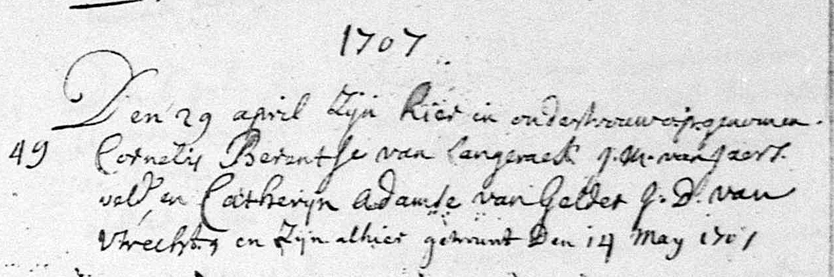 1707
Den 29 april zijn hier in ondertrouw opgenomen.
49 Cornelis Berentse van Langeraek J. M. van Jaers
veld en Catherijn Adamse van Gelder J. D. van
Vtrecht en zijn alhier getrout Den 14 May 1707